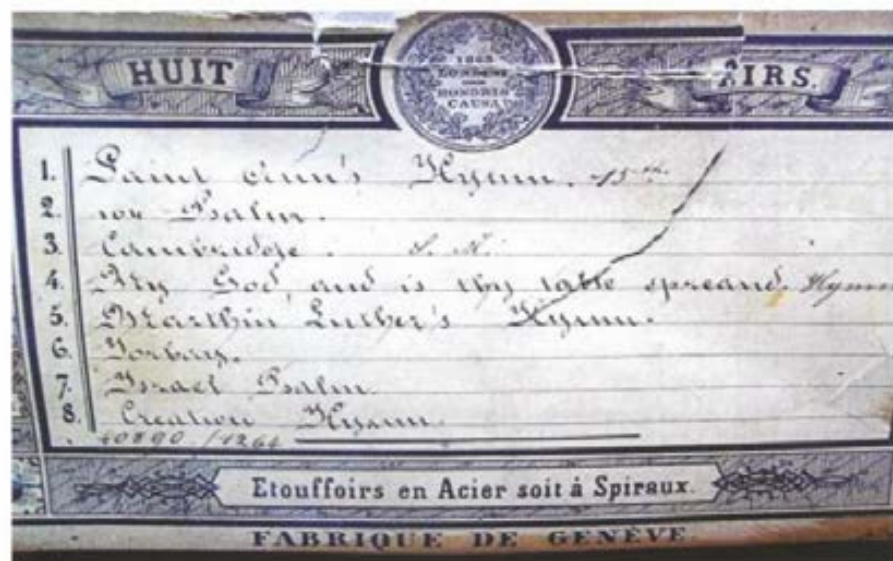 HUIT AIRS.
LONDRES
HONORIS
CAUSA
1. Saint Ann's Hymn.
2. 104 Psalm.
3. Cambridge.
4. My God, and is thy table spreand. Hymn
5. Marthin Luther's Hymn.
6. Torbay.
7. Israel Psalm
8. Creation Hymn.
Etouffoirs en Acier soit à Spiraux.
FABRIQUE DE GENÈVE